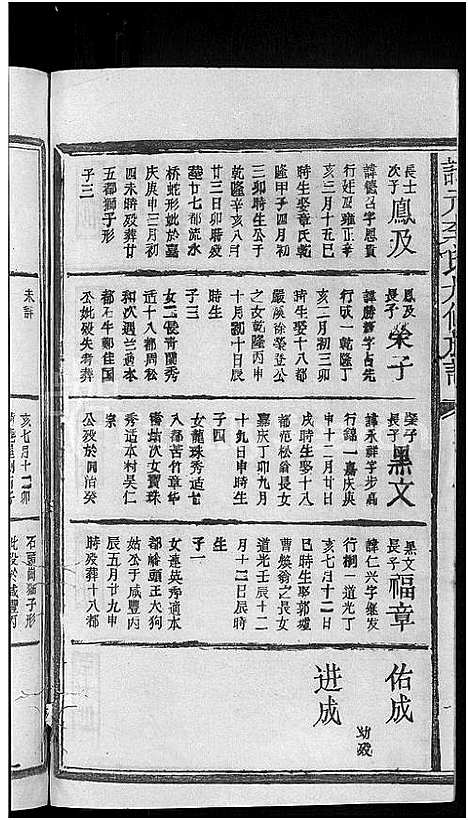 長士
次子
鳳及
三月十五巳
時生娶章氏乾
隆甲子四月初
三卯時生公于
乾隆辛亥八月
廿三日卯時歿
葬廿七都流水
橋蛇形妣於嘉
慶庚申三月初
四未時歿葬廿
五都獅子形
子三
鳳及
長子
榮子
行成一乾隆丁
亥二月初三卯
時生娶十八都
嚴溪徐榮登公
之女乾隆丙申
十月初十日辰
時生
子三
女二長青蘭秀
适十八都周松
和次遇兰适本
都石牛鄭佳国
公妣歿失考葬
榮子
長子
黑文
諱永祥字步高
行錦一嘉庆庚
申十二月廿日
戌時生娶十八
都范松翁長女
嘉庆丁卯九月
十九日申時生
子四
女龍珠秀适七
八都苦竹章华
秀适本村吴仁
宗
公歿於同治癸
黑文
長子
福章
諱仁兴字继发
行樹一道光丁
亥七月十二日
巳時生娶郭墟
曹煥翁之長女
道光壬辰十二
月十二日辰時
生
子一
女連英秀適本
都嶺頭王大狗
姑公于咸豐丙
辰五月廿九申
時歿葬十八都
佑成
进成
幼歿
未詳
亥七月十二卯
石頭崗獅子形
妣歿於咸豐丁